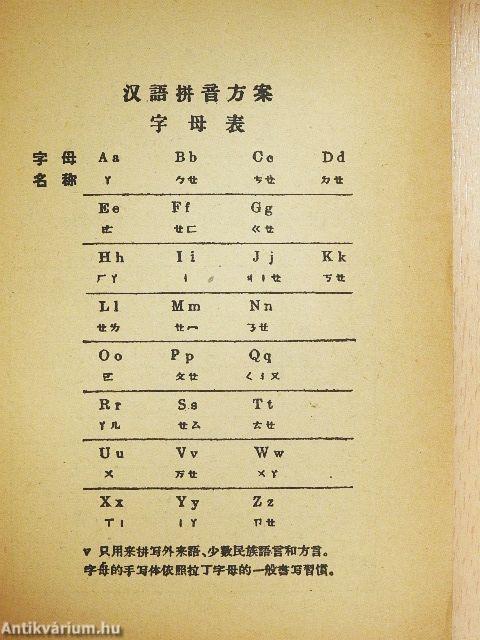 汉語拼音方案
字母表
字母 Aa Bb Cc Dd
名称 ㄚ ㄅㄝ ㄘㄝ ㄉㄝ
Ee Ff Gg
ㄜ ㄝㄈ ㄍㄝ
Hh Ii Jj Kk
ㄏㄚ ㄧ ㄐㄧㄝ ㄎㄝ
Ll Mm Nn
ㄝㄌ ㄝㄇ ㄋㄝ
Oo Pp Qq
ㄛ ㄆㄝ ㄑㄧㄡ
Rr Ss Tt
ㄚㄦ ㄝㄙ ㄊㄝ
Uu Vv Ww
ㄨ ㄪㄝ ㄨㄚ
Xx Yy Zz
ㄒㄧ ㄧㄚ ㄗㄝ
v 只用来拼写外来語、少数民族語言和方言。
字母的手写体依照拉丁字母的一般書写習慣。
Antikvárium.hu